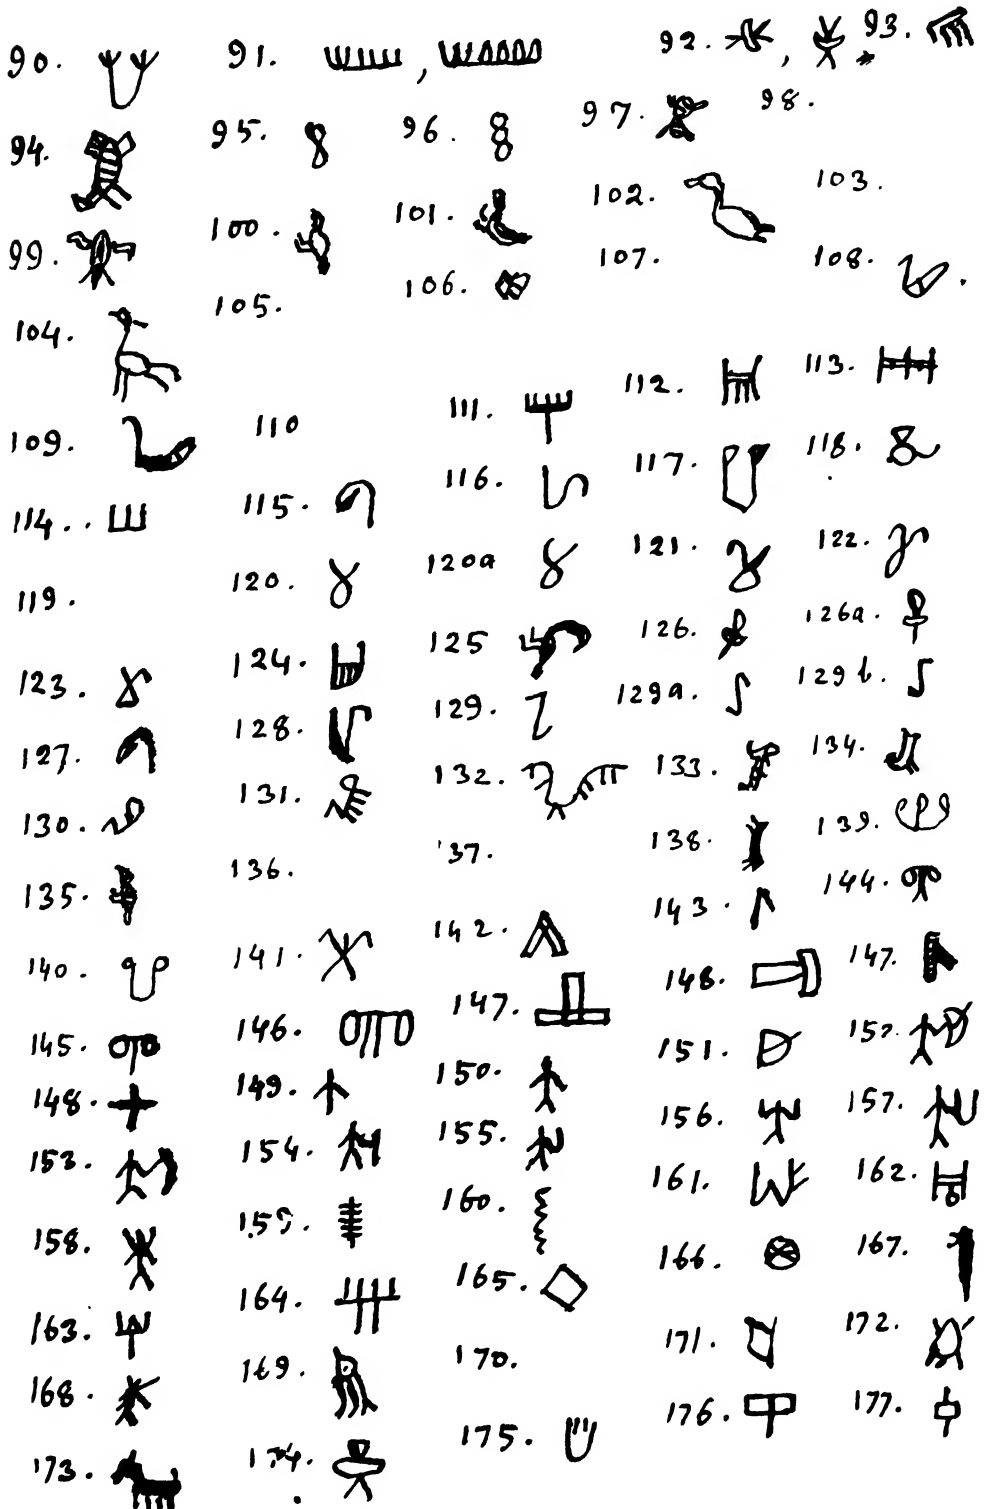 90. 91. , 92. , 93.
94. 95. 96. 97. 98.
99. 100. 101. 102. 103.
104. 105. 106. 107. 108.
109. 110 111. 112. 113.
114. 115. 116. 117. 118.
119. 120. 120a 121. 122.
123. 124. 125 126. 126a.
127. 128. 129. 129a. 129b.
130. 131. 132. 133. 134.
135. 136. 137. 138. 139.
140. 141. 142. 143. 144.
145. 146. 147. 148. 147.
148. 149. 150. 151. 152.
153. 154. 155. 156. 157.
158. 159. 160. 161. 162.
163. 164. 165. 166. 167.
168. 169. 170. 171. 172.
173. 174. 175. 176. 177.